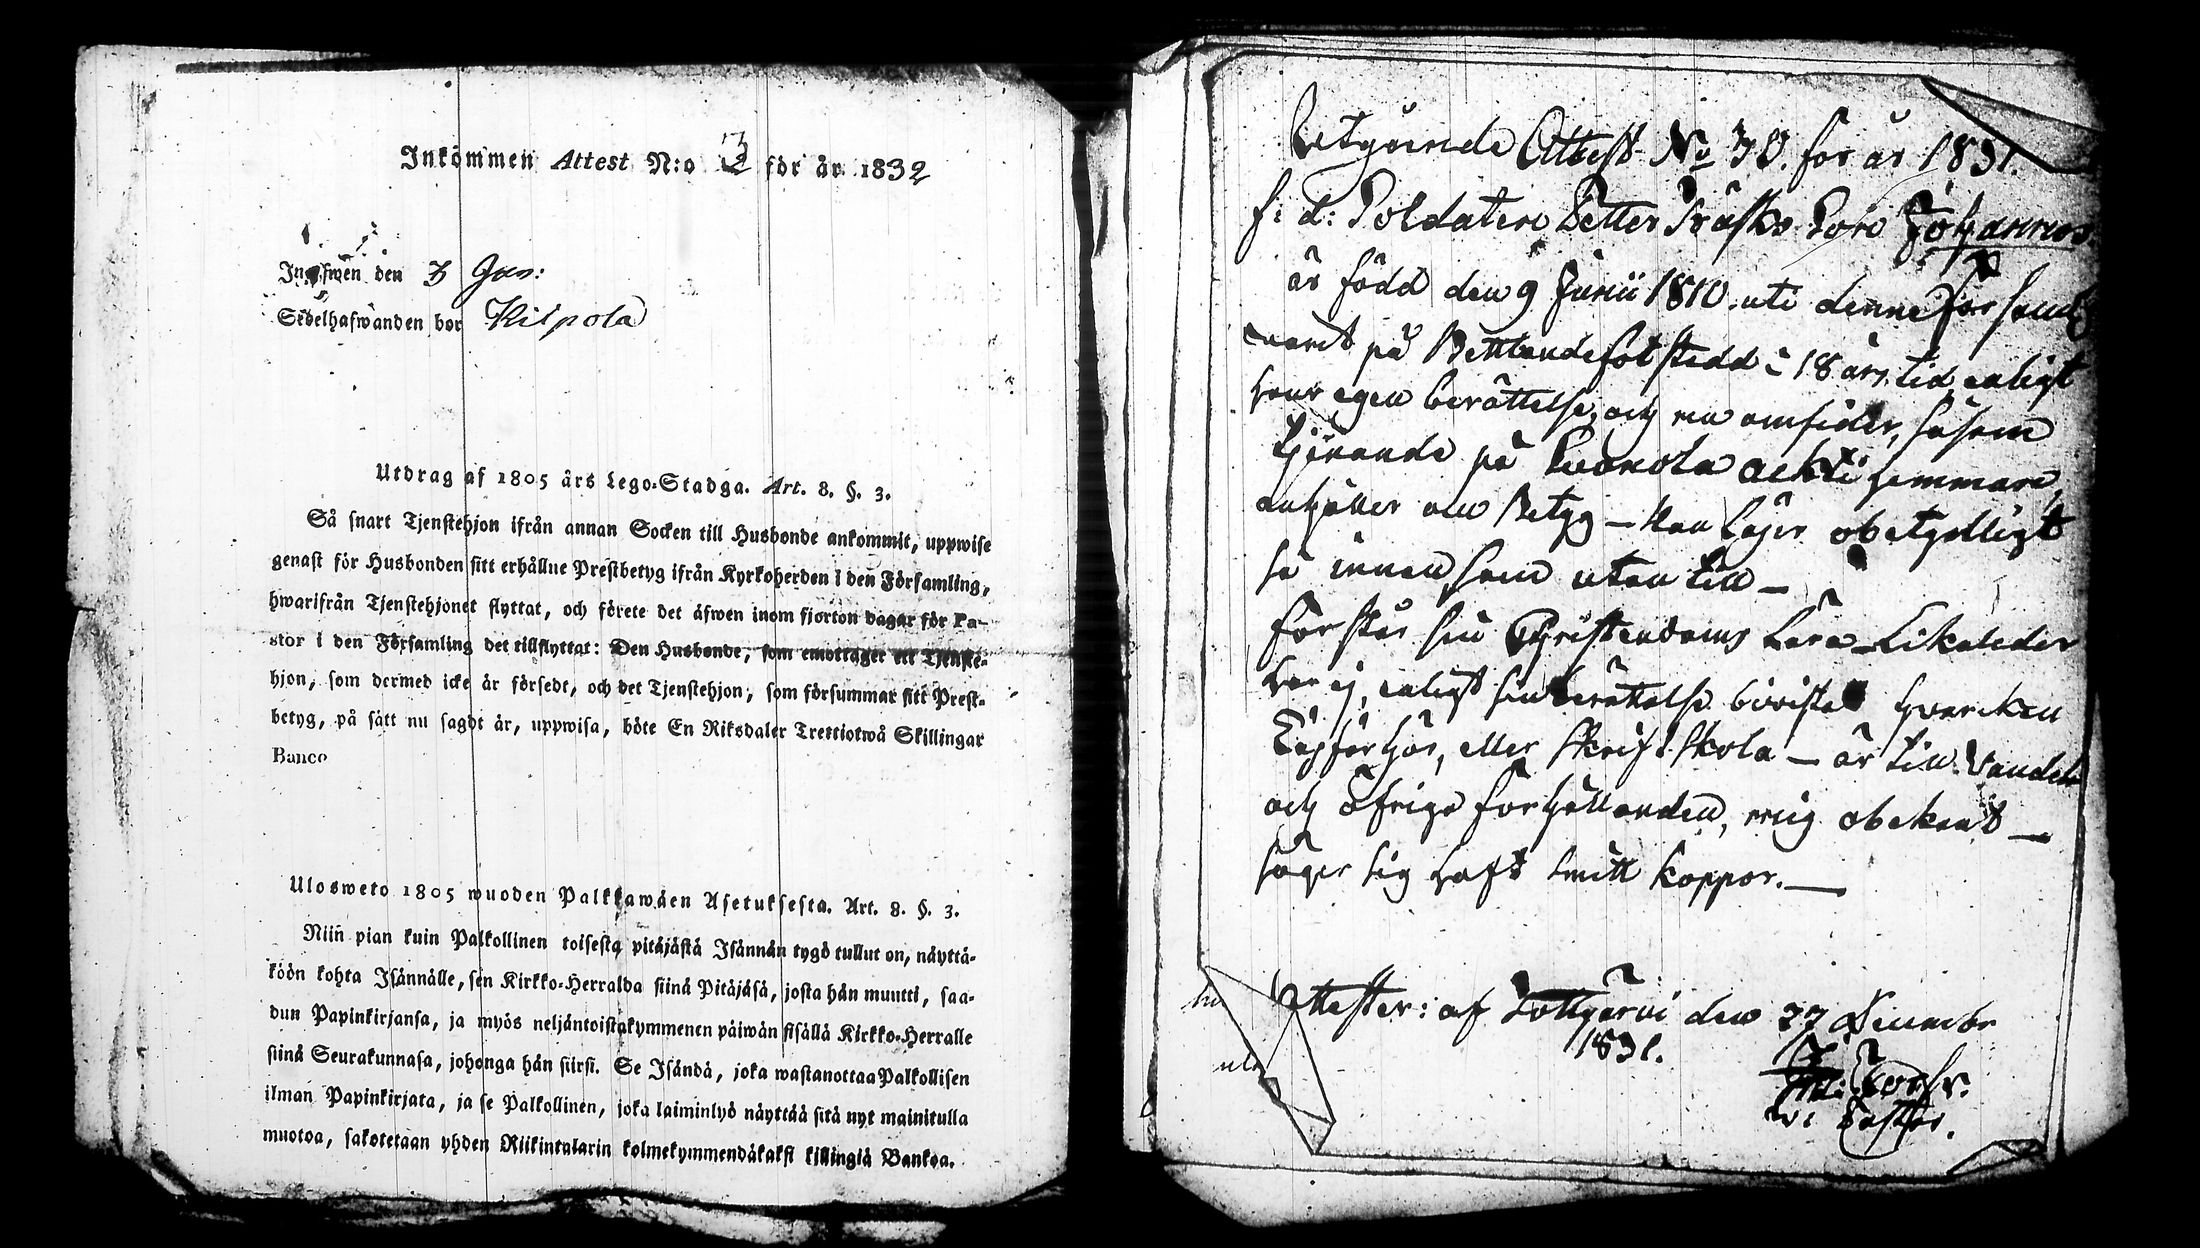 Inkommen Attest N:o 3 för år 1832
Ingifwen den 3 Jan:
Sedelhafwanden bor Kilpola
Utdrag af 1805 års Lego-Stadga. Art. 8. §. 3.
Så snart Tjenstehjon ifrån annan Socken till Husbonde ankommit, uppwise
genast för Husbonden sitt erhållne Prestbetyg ifrån Kyrkoherden i den Församling,
hwarifrån Tjenstehjonet flyttat, och förete det äfwen inom fjorton dagar för Pa-
stor i den Församling det tillflyttat: Den Husbonde, som emottager ett Tjenste-
hjon, som dermed icke är försedt, och det Tjenstehjon, som försummar sitt Prest-
betyg, på sätt nu sagdt är, uppwisa, böte En Riksdaler Trettiotwå Skillingar
Banco
Ulosweto 1805 wuoden Palkkawäen Asetuksesta. Art. 8. §. 3.
Niin pian kuin Palkollinen toisesta pitäjästä Isännän tygö tullut on, näyttä-
köön kohta Isännälle, sen Kirkko-Herralda siinä Pitäjäsä, josta hän muutti, saa-
dun Papinkirjansa, ja myös neljäntoistakymmenen päiwän sisällä Kirkko-Herralle
siinä Seurakunnasa, johonga hän siirsi. Se Isändä, joka wastanottaa Palkollisen
ilman Papinkirjata, ja se Palkollinen, joka laiminlyö näyttää sitä nyt mainitulla
muotoa, sakotetaan yhden Riikintalarin kolmekymmendäkaksi killingiä Bankoa.
Utgående Attest No 30. för år 1831.
f: d: Soldaten Petter Träsks Son Johannes
är född den 9 Junii 1810. uti denne Förs
varit på i 18 års tid enligt
hans egen berättelse, och nu omsider, såsom
tjenande på hemman,
anhåller om Betyg – Han läser obetydligt
så innan som utan till –
Förstår sin Christendoms Lära – Likaledes
har ej, enligt sin berättelse bivistat hvarcken
Läsförhör, eller Skriftskola – är till Vandel
och öfriga förhållanden, mig obekant –
säger sig haft Smitt koppor. –
Attester: af den 27 December
1831.
v: Pastor.